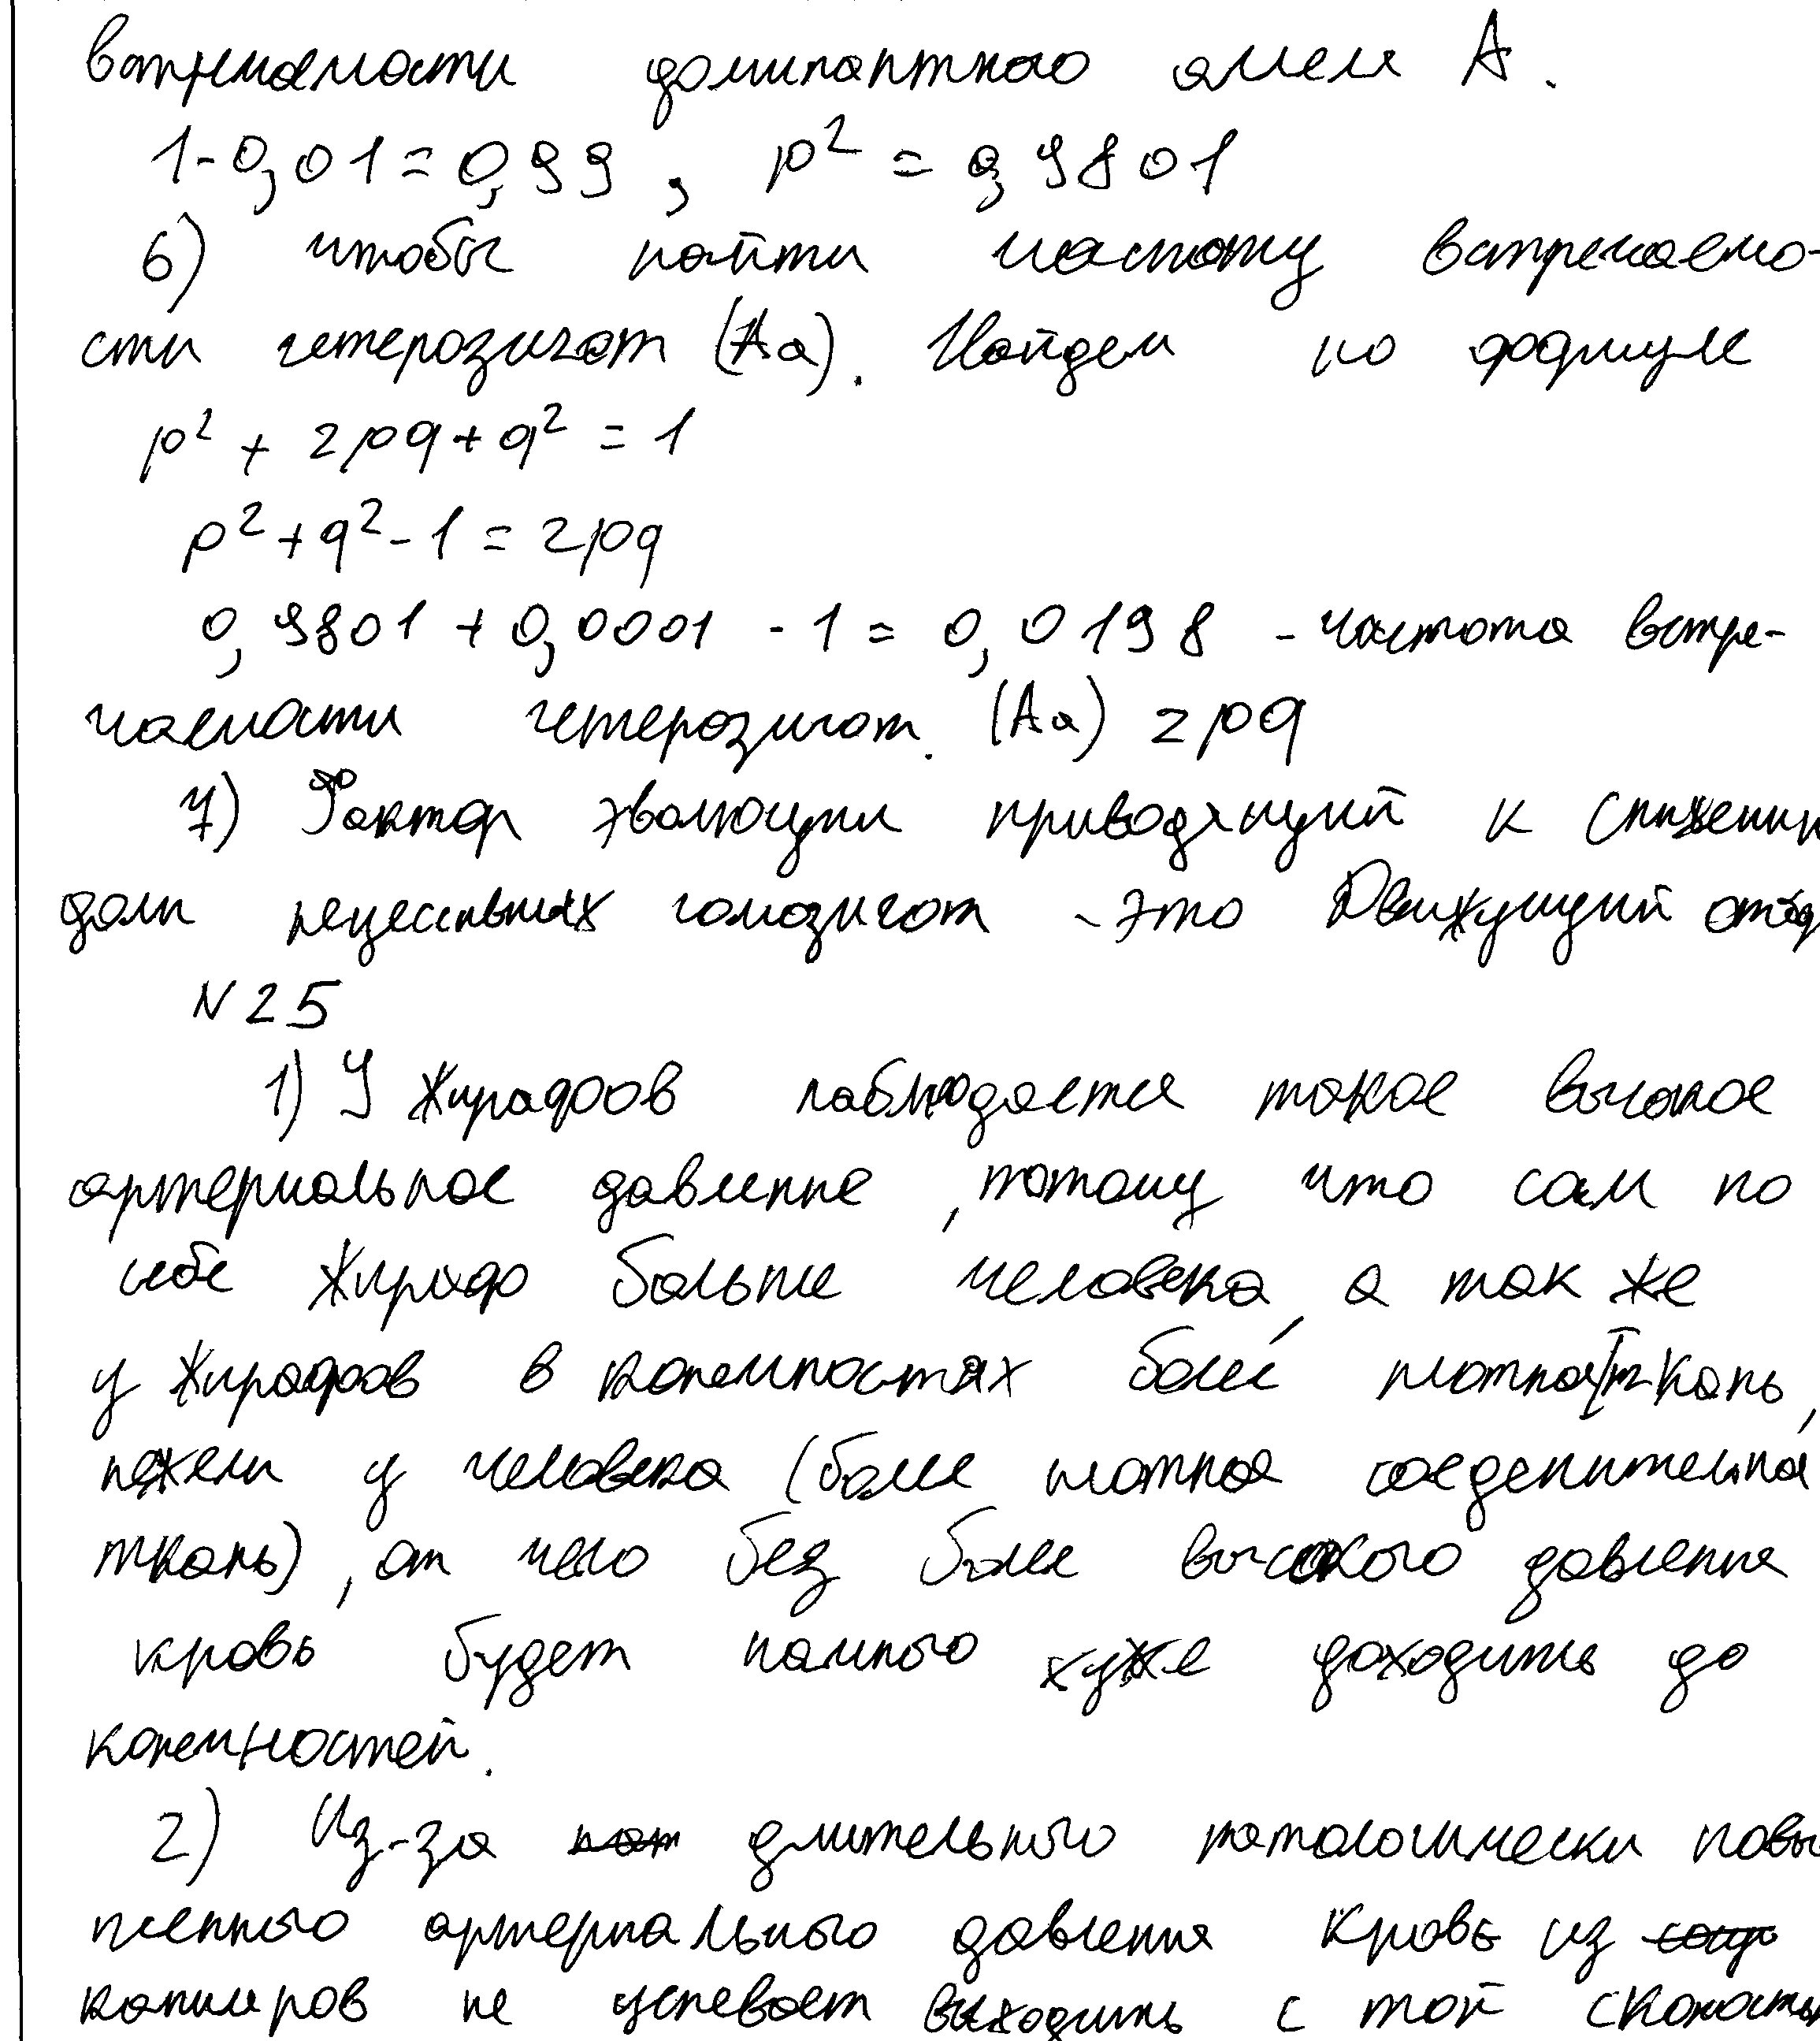 встречаемости доминантного аллеля А.
1-0,01=0,99, p² = 0,9801
6) чтобы найти частоту встречаемо-
сти гетерозигот (Аа). Найдем по формуле
p² + 2pq + q² = 1
p² + q² - 1 = 2pq
0,9801 + 0,0001 - 1 = 0,0198 - частота встре-
чаемости гетерозигот. (Аа) 2pq
7) Фактор эволюции приводящий к снижени
доли рецессивных гомозигот - это Движущий отбор
N 25
1) У жирафов наблюдается такое высокое
артериальное давление, потому что сам по
себе жираф больше человека, а так же
у жирафов в конечностях более плотная ткань,
нежели у человека (более плотная соеденительная
ткань), от чего без более высокого давления
кровь будет намного хуже доходить до
конечностей.
2) Из-за длительного патологически повы
шенного артериального давления кровь из
капиляров не успевает выходить с той скоростью